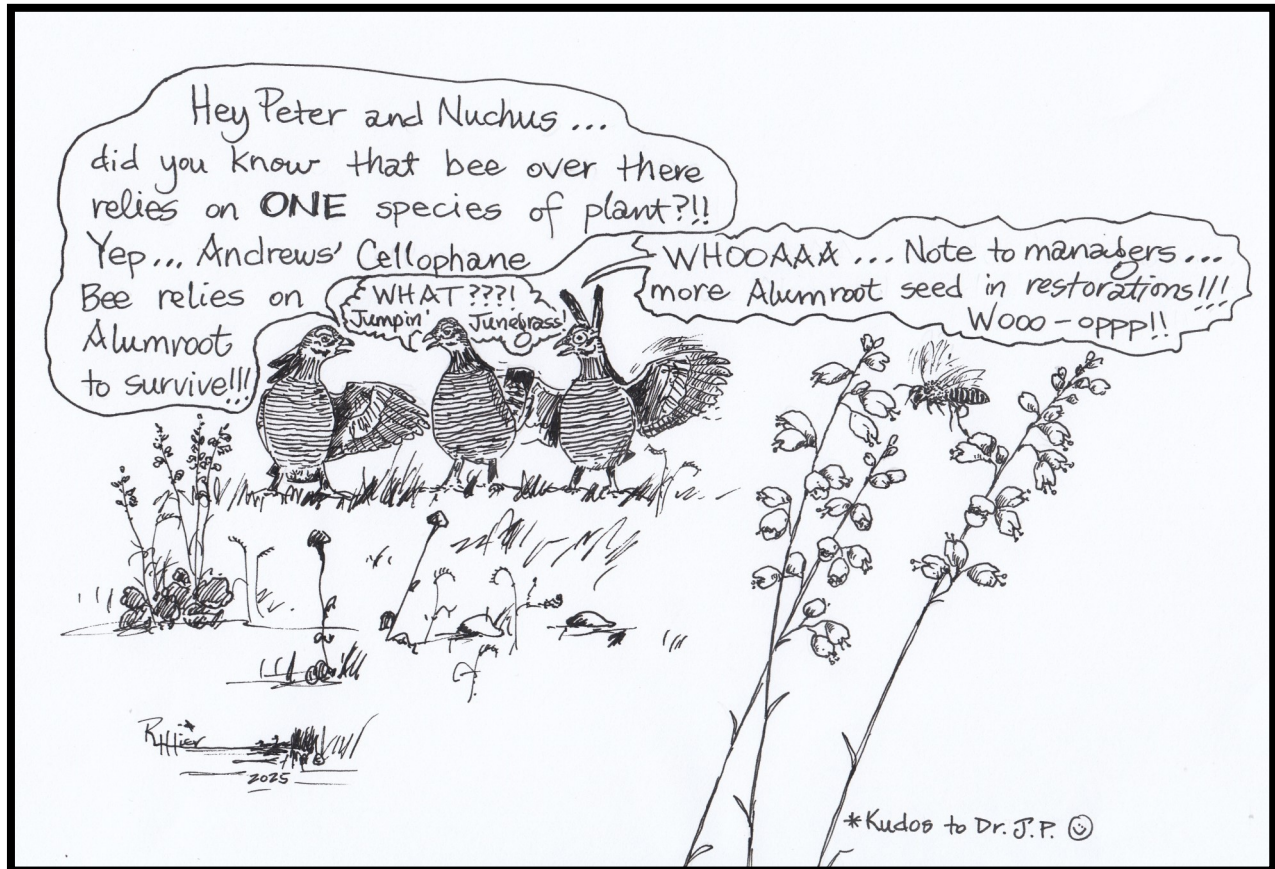 Hey Peter and Nuchus ...
did you know that bee over there
relies on ONE species of plant?!!
Yep... Andrews' Cellophane
Bee relies on
Alumroot
to survive!!!
WHAT ???!
Jumpin' Junegrass!
WHOOAAA ... Note to managers ...
more Alumroot seed in restorations!!!
Wooo-oppp!!
2025
*Kudos to Dr. J.P. ☺